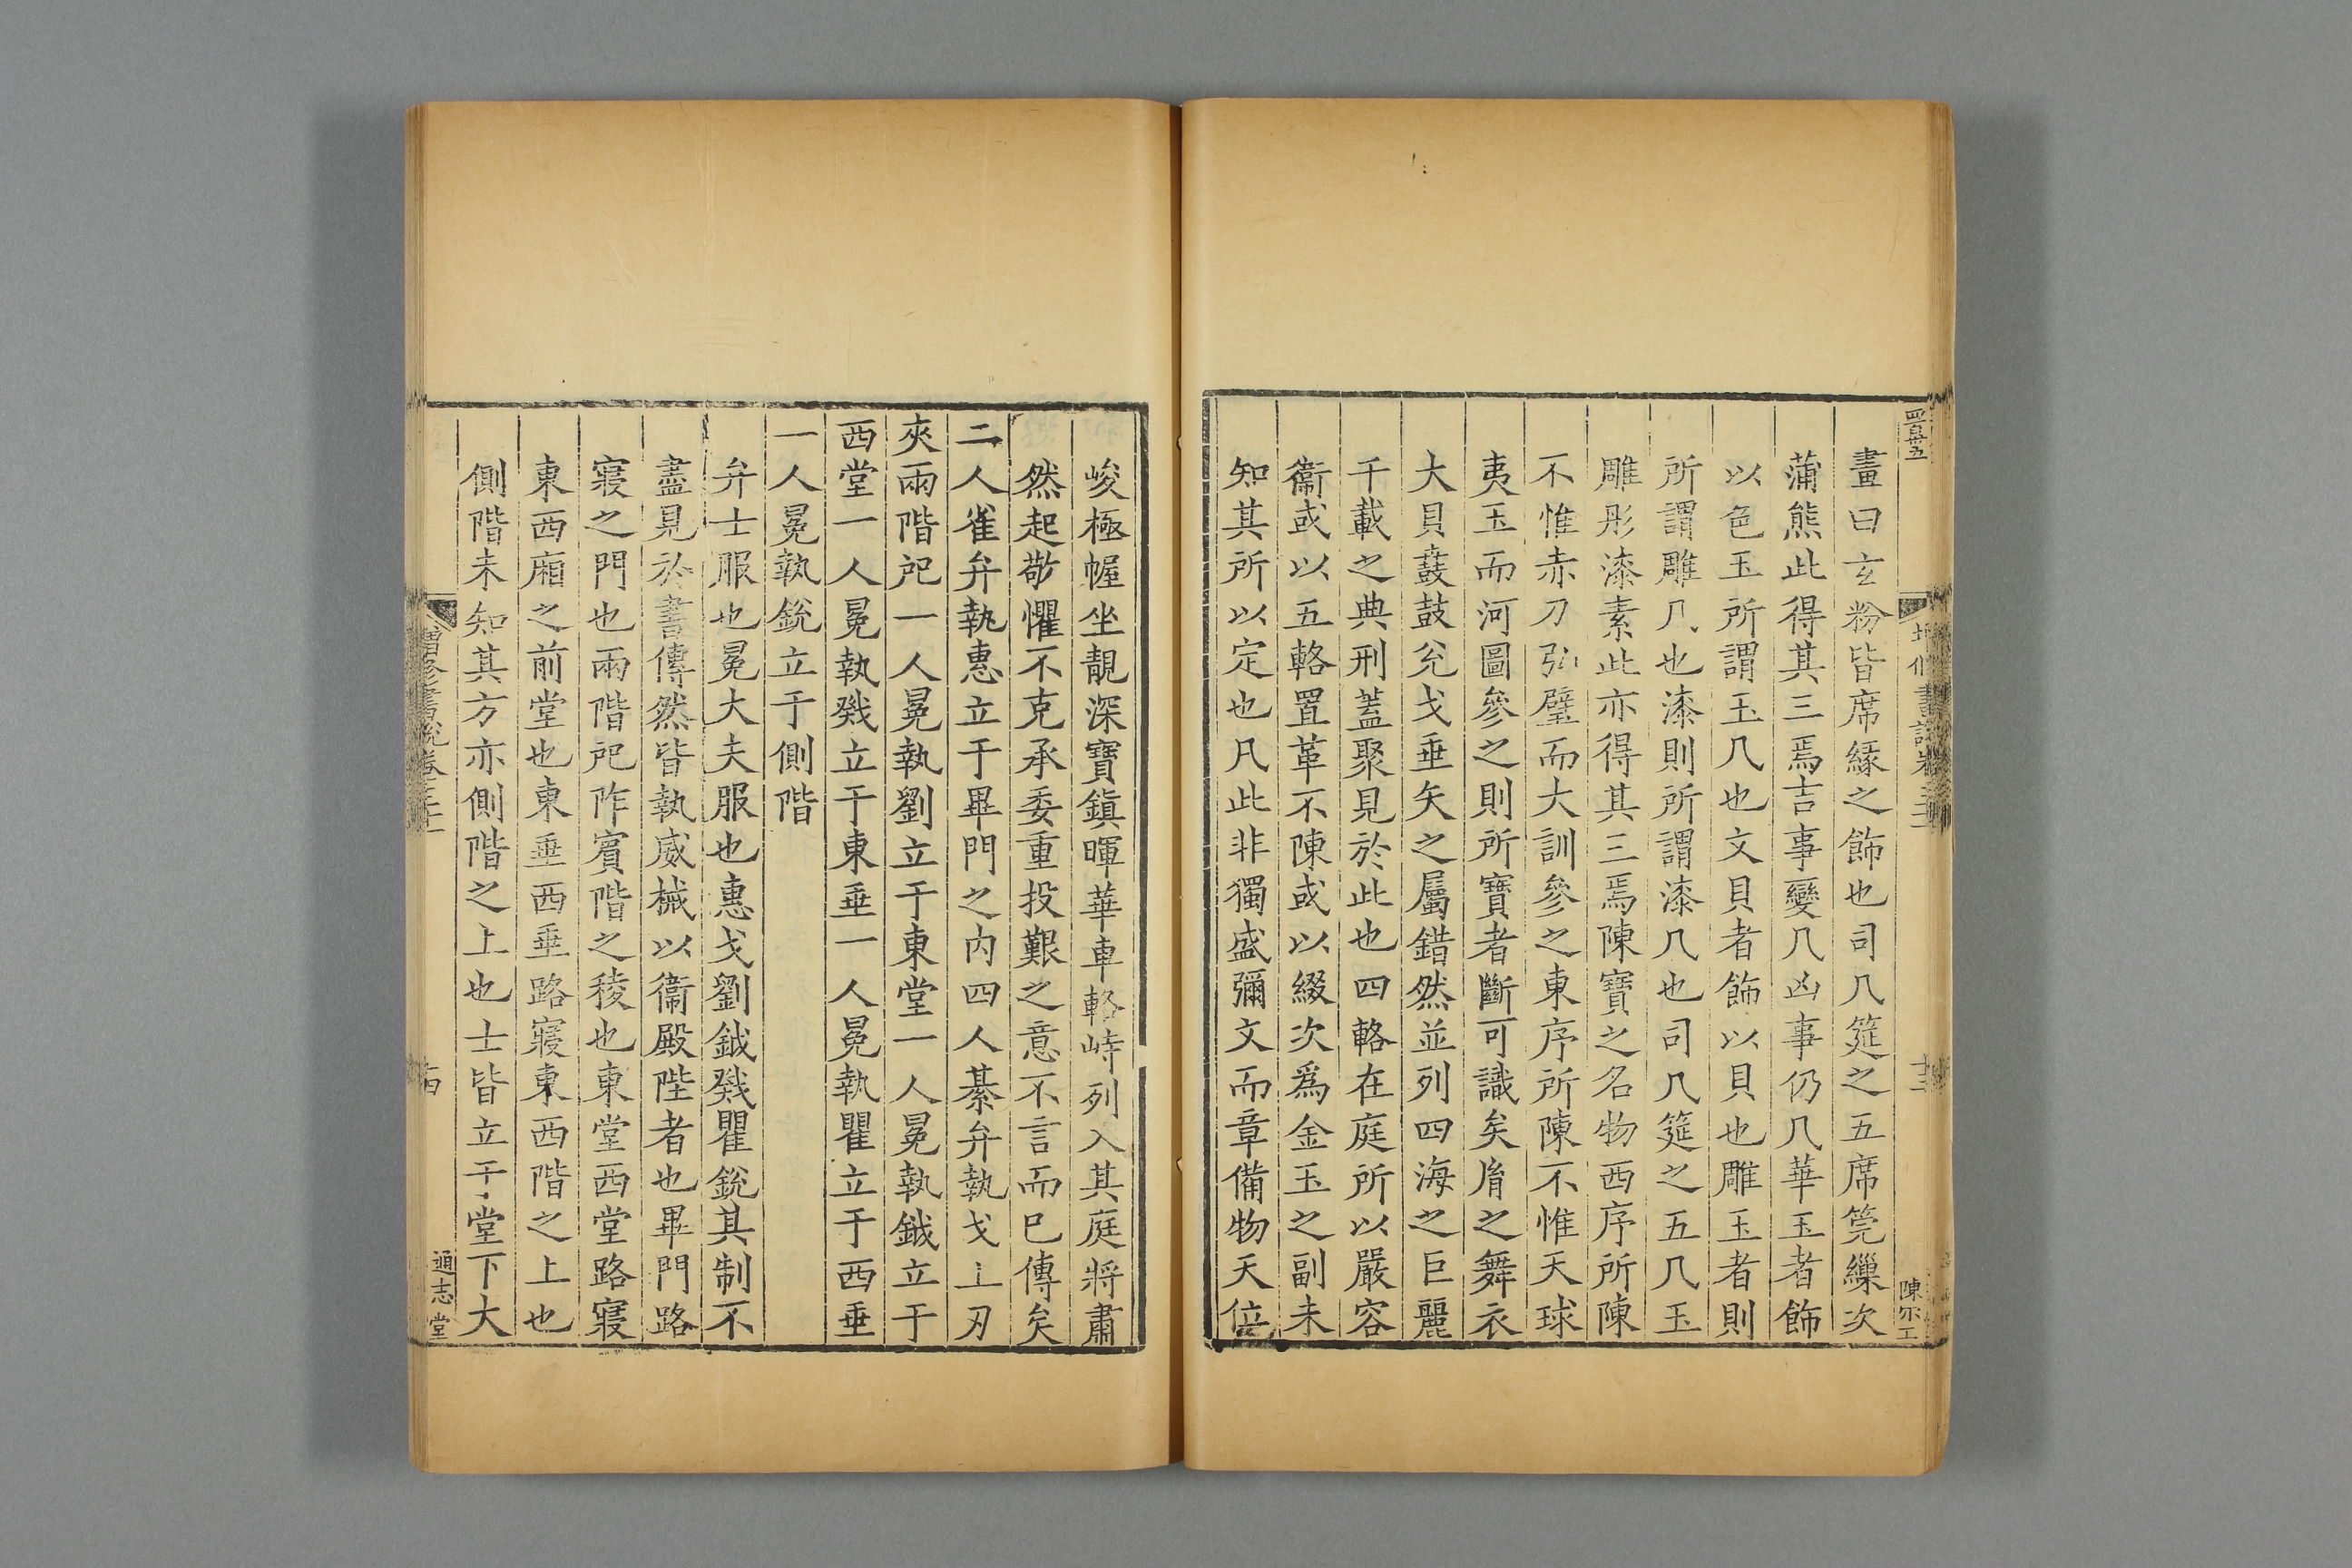 畫曰玄粉皆席緣之飾也司几筵之五席莞繅次
蒲熊此得其三焉吉事變几凶事仍几華玉者飾
以色玉所謂玉几也文貝者飾以貝也雕玉者則
所謂雕几也漆則所謂漆几也司几筵之五几玉
雕彤漆素此亦得其三焉陳寶之名物西序所陳
不惟赤刀弘璧而大訓參之東序所陳不惟天球
夷玉而河圖參之則所寶者斷可識矣胤之舞衣
大貝鼖鼓兊戈垂矢之屬錯然並列四海之巨麗
千載之典刑蓋聚見於此也四輅在庭所以嚴容
衞或以五輅置革不陳或以綴次爲金玉之副未
知其所以定也凡此非獨盛彌文而章備物天位
陳尔工
峻極幄坐靚深寶鎮暉華車輅峙列入其庭將肅
然起敬懼不克承委重投艱之意不言而已傳矣
二人雀弁執惠立于畢門之內四人綦弁執戈上刃
夾兩階戺一人冕執劉立于東堂一人冕執鉞立于
西堂一人冕執戣立于東垂一人冕執瞿立于西垂
一人冕執銳立于側階
弁士服也冕大夫服也惠戈劉鉞戣瞿銳其制不
盡見於書傳然皆執威械以衞殿陛者也畢門路
寢之門也兩階戺阼賓階之稜也東堂西堂路寢
東西廂之前堂也東垂西垂路寢東西階之上也
側階未知其方亦側階之上也士皆立于堂下大
增修書說卷三十
十四
通志堂